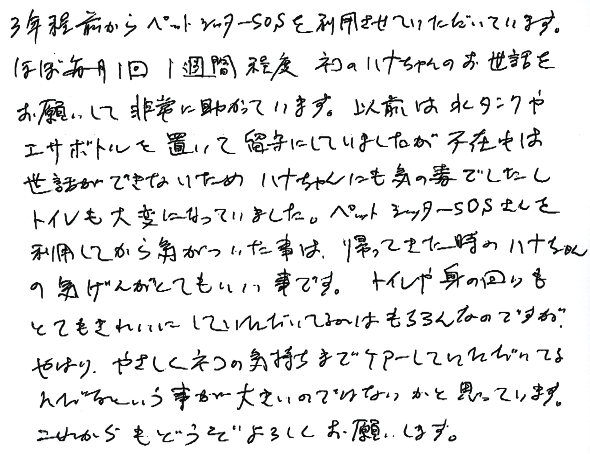 3年程前からペットシッターSOSを利用させていただいています。
ほぼ毎月1回 1週間程度 ネコのハナちゃんのお世話を
お願いして非常に助かっています。以前は水タンクや
エサボトルを置いて留守にしていましたが 不在中は
世話ができないため ハナちゃんにも気の毒でしたし
トイレも大変になっていました。ペットシッターSOSさんを
利用してから気がついた事は、帰ってきた時のハナちゃん
の気げんがとてもいい事です。 トイレや身の回りも
とてもきれいにしていただいてるのはもちろんなのですが、
やはり、やさしくネコの気持ちまでケアーしていただいてる
んだなという事が大きいのではないかと思っています。
これからもどうぞよろしくお願いします。